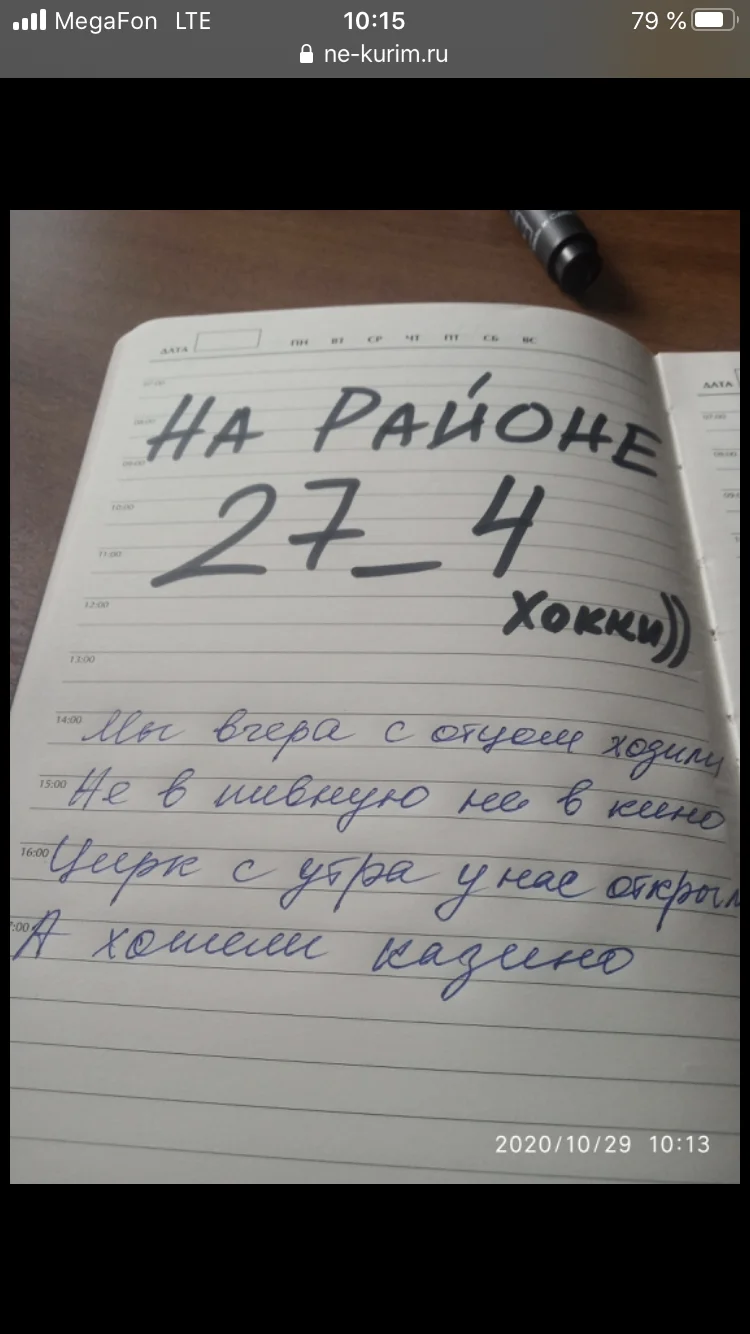 MegaFon LTE 10:15 79 %
ne-kurim.ru
ДАТА ПН ВТ СР ЧТ ПТ СБ ВС
ДАТА
07:00
08:00
09:00
НА РАЙОНЕ
10:00
27_4
11:00
12:00
Хокки))
13:00
14:00 Мы вчера с отцом ходили
15:00 Не в пивную не в кино
16:00 Цирк с утра у нас открыл
:00 А хотели казино
2020/10/29 10:13